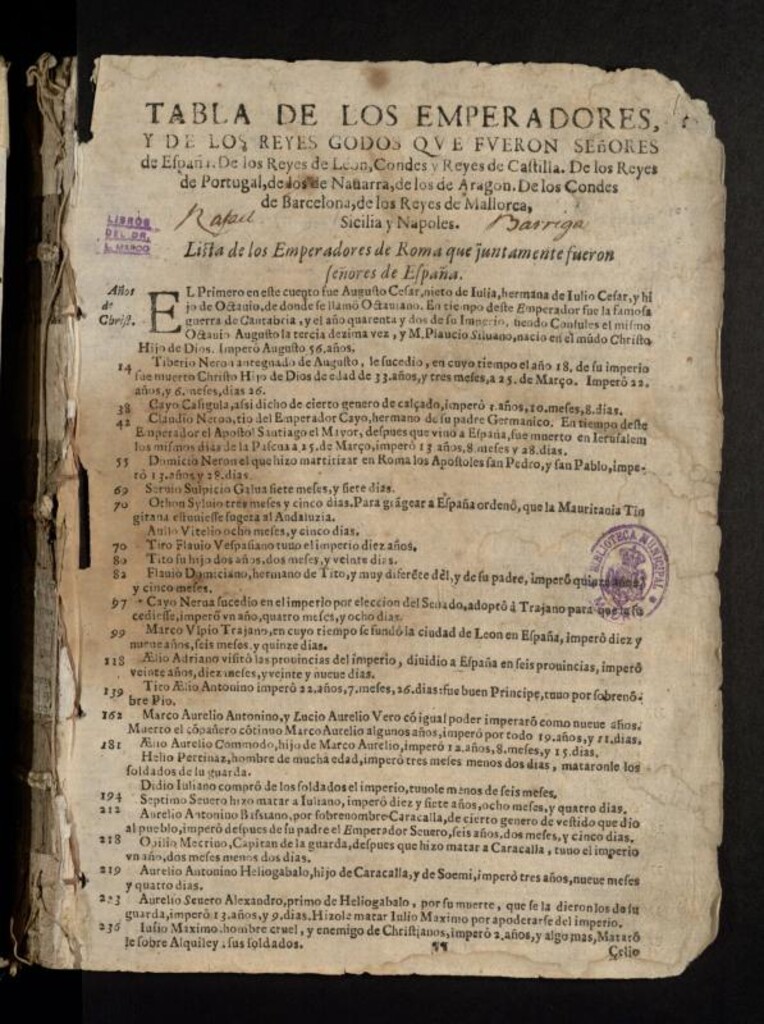 TABLA DE LOS EMPERADORES,
Y DE LOS REYES GODOS QVE FVERON SEñORES
de España. De los Reyes de Leon, Condes y Reyes de Castilla. De los Reyes
de Portugal, de los de Nauarra, de los de Aragon. De los Condes
de Barcelona, de los Reyes de Mallorca,
Rafael Sicilia y Napoles. Barriga
LIBROS
DEL DR.
L. MARCO
Lista de los Emperadores de Roma que juntamente fueron
señores de España.
Años
de
Christ.
EL Primero en este cuento fue Augusto Cesar, nieto de Iulia, hermana de Iulio Cesar, y hi
jo de Octauio, de donde se llamò Octauiano. En tiempo deste Emperador fue la famosa
guerra de Cantabria, y el año quarenta y dos de su Imperio, siendo Consules el mismo
Octauio Augusto la tercia dezima vez, y M. Plaucio Siluano, nacio en el mũdo Christo
Hijo de Dios. Imperò Augusto 56. años.
14 Tiberio Neron antegnado de Augusto, le sucedio, en cuyo tiempo el año 18. de su imperio
fue muerto Christo Hijo de Dios de edad de 33. años, y tres meses, a 25. de Março. Imperò 22.
años, y 6. meses, dias 26.
38 Cayo Caligula, assi dicho de cierto genero de calçado, imperò 1. años, 10. meses, 8. dias.
42 Claudio Neron, tio del Emperador Cayo, hermano de su padre Germanico. En tiempo deste
Emperador el Apostol Santiago el Mayor, despues que vino a España, fue muerto en Ierusalem
los mismos dias de la Pascua a 25. de Março, imperò 13 años, 8. meses y 28. dias.
55 Domicio Neron el que hizo martirizar en Roma los Apostoles san Pedro, y san Pablo, impe-
rò 13. años y 28. dias.
69 Seruio Sulpicio Galua siete meses, y siete dias.
70 Othon Syluio tres meses y cinco dias. Para grãgear a España ordenò, que la Mauritania Tin
gitana estuuiesse sugeta al Andaluzia.
Aulo Vitelio ocho meses, y cinco dias.
70 Tito Flauio Vespasiano tuuo el imperio diez años.
80 Tito su hijo dos años, dos meses, y veinte dias.
82 Flauio Domiciano, hermano de Tito, y muy diferẽte dèl, y de su padre, imperò quinze años,
y cinco meses.
97 Cayo Nerua sucedio en el imperio por eleccion del Senado, adoptò à Trajano para que le su
cediesse, imperò vn año, quatro meses, y ocho dias.
99 Marco Vlpio Trajano, en cuyo tiempo se fundò la ciudad de Leon en España, imperò diez y
nueue años, seis meses y quinze dias.
118 Ælio Adriano visitò las prouincias del imperio, diuidio a España en seis prouincias, imperò
veinte años, diez meses, y veinte y nueue dias.
139 Tito Ælio Antonino imperò 22. años, 7. meses, 26. dias: fue buen Principe, tuuo por sobrenõ-
bre Pio.
162 Marco Aurelio Antonino, y Lucio Aurelio Vero cõ igual poder imperarõ como nueue años.
Muerto el cõpañero cõtinuo Marco Aurelio algunos años, imperò por todo 19. años, y 11. dias.
181 Ælio Aurelio Commodo, hijo de Marco Aurelio, imperò 12. años, 8. meses, y 15. dias.
Helio Pertinaz, hombre de mucha edad, imperò tres meses menos dos dias, mataronle los
soldados de su guarda.
Didio Iuliano comprò de los soldados el imperio, tuuole menos de seis meses.
194 Septimo Seuero hizo matar a Iuliano, imperò diez y siete años, ocho meses, y quatro dias.
212 Aurelio Antonino Bassiano, por sobrenombre Caracalla, de cierto genero de vestido que dio
al pueblo, imperò despues de su padre el Emperador Seuero, seis años, dos meses, y cinco dias.
218 Opilio Mecrino, Capitan de la guarda, despues que hizo matar a Caracalla, tuuo el imperio
vn año, dos meses menos dos dias.
219 Aurelio Antonino Heliogabalo, hijo de Caracalla, y de Soemi, imperò tres años, nueue meses
y quatro dias.
223 Aurelio Seuero Alexandro, primo de Heliogabalo, por su muerte, que se la dieron los de su
guarda, imperò 13. años, y 9. dias. Hizole matar Iulio Maximo por apoderarse del imperio.
236 Iulio Maximo hombre cruel, y enemigo de Christianos, imperò 2. años, y algo mas, Mataró
le sobre Alquiley a sus soldados.
¶¶ Celio
BIBLIOTECA MUNICIPAL